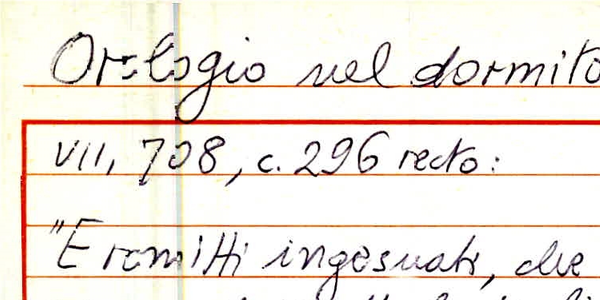 Orologio nel dormito
VII, 708, c. 296 recto:
"Eremitti ingesuati, che